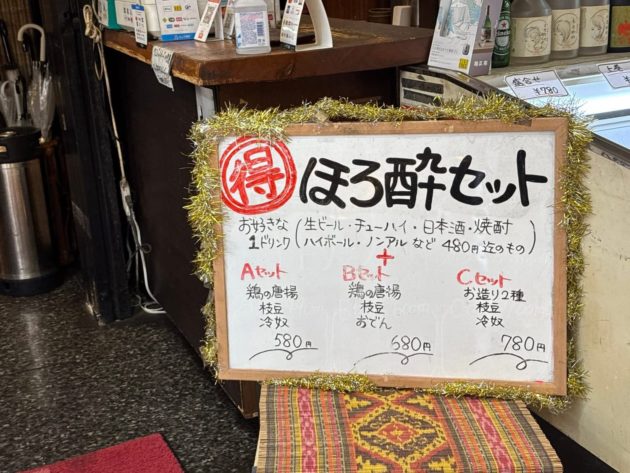 盛合せ
¥780
得 ほろ酔セット
お好きな
1ドリンク
(生ビール・チューハイ・日本酒・焼酎
ハイボール・ノンアル など 480円迄のもの)
+
Aセット
鶏の唐揚
枝豆
冷奴
580円
Bセット
鶏の唐揚
枝豆
おでん
680円
Cセット
お造り2種
枝豆
冷奴
780円